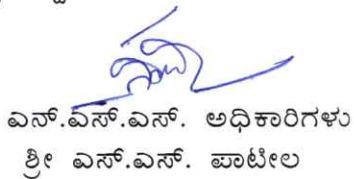 ಎನ್.ಎಸ್.ಎಸ್. ಅಧಿಕಾರಿಗಳು
ಶ್ರೀ ಎಸ್.ಎಸ್. ಪಾಟೀಲ